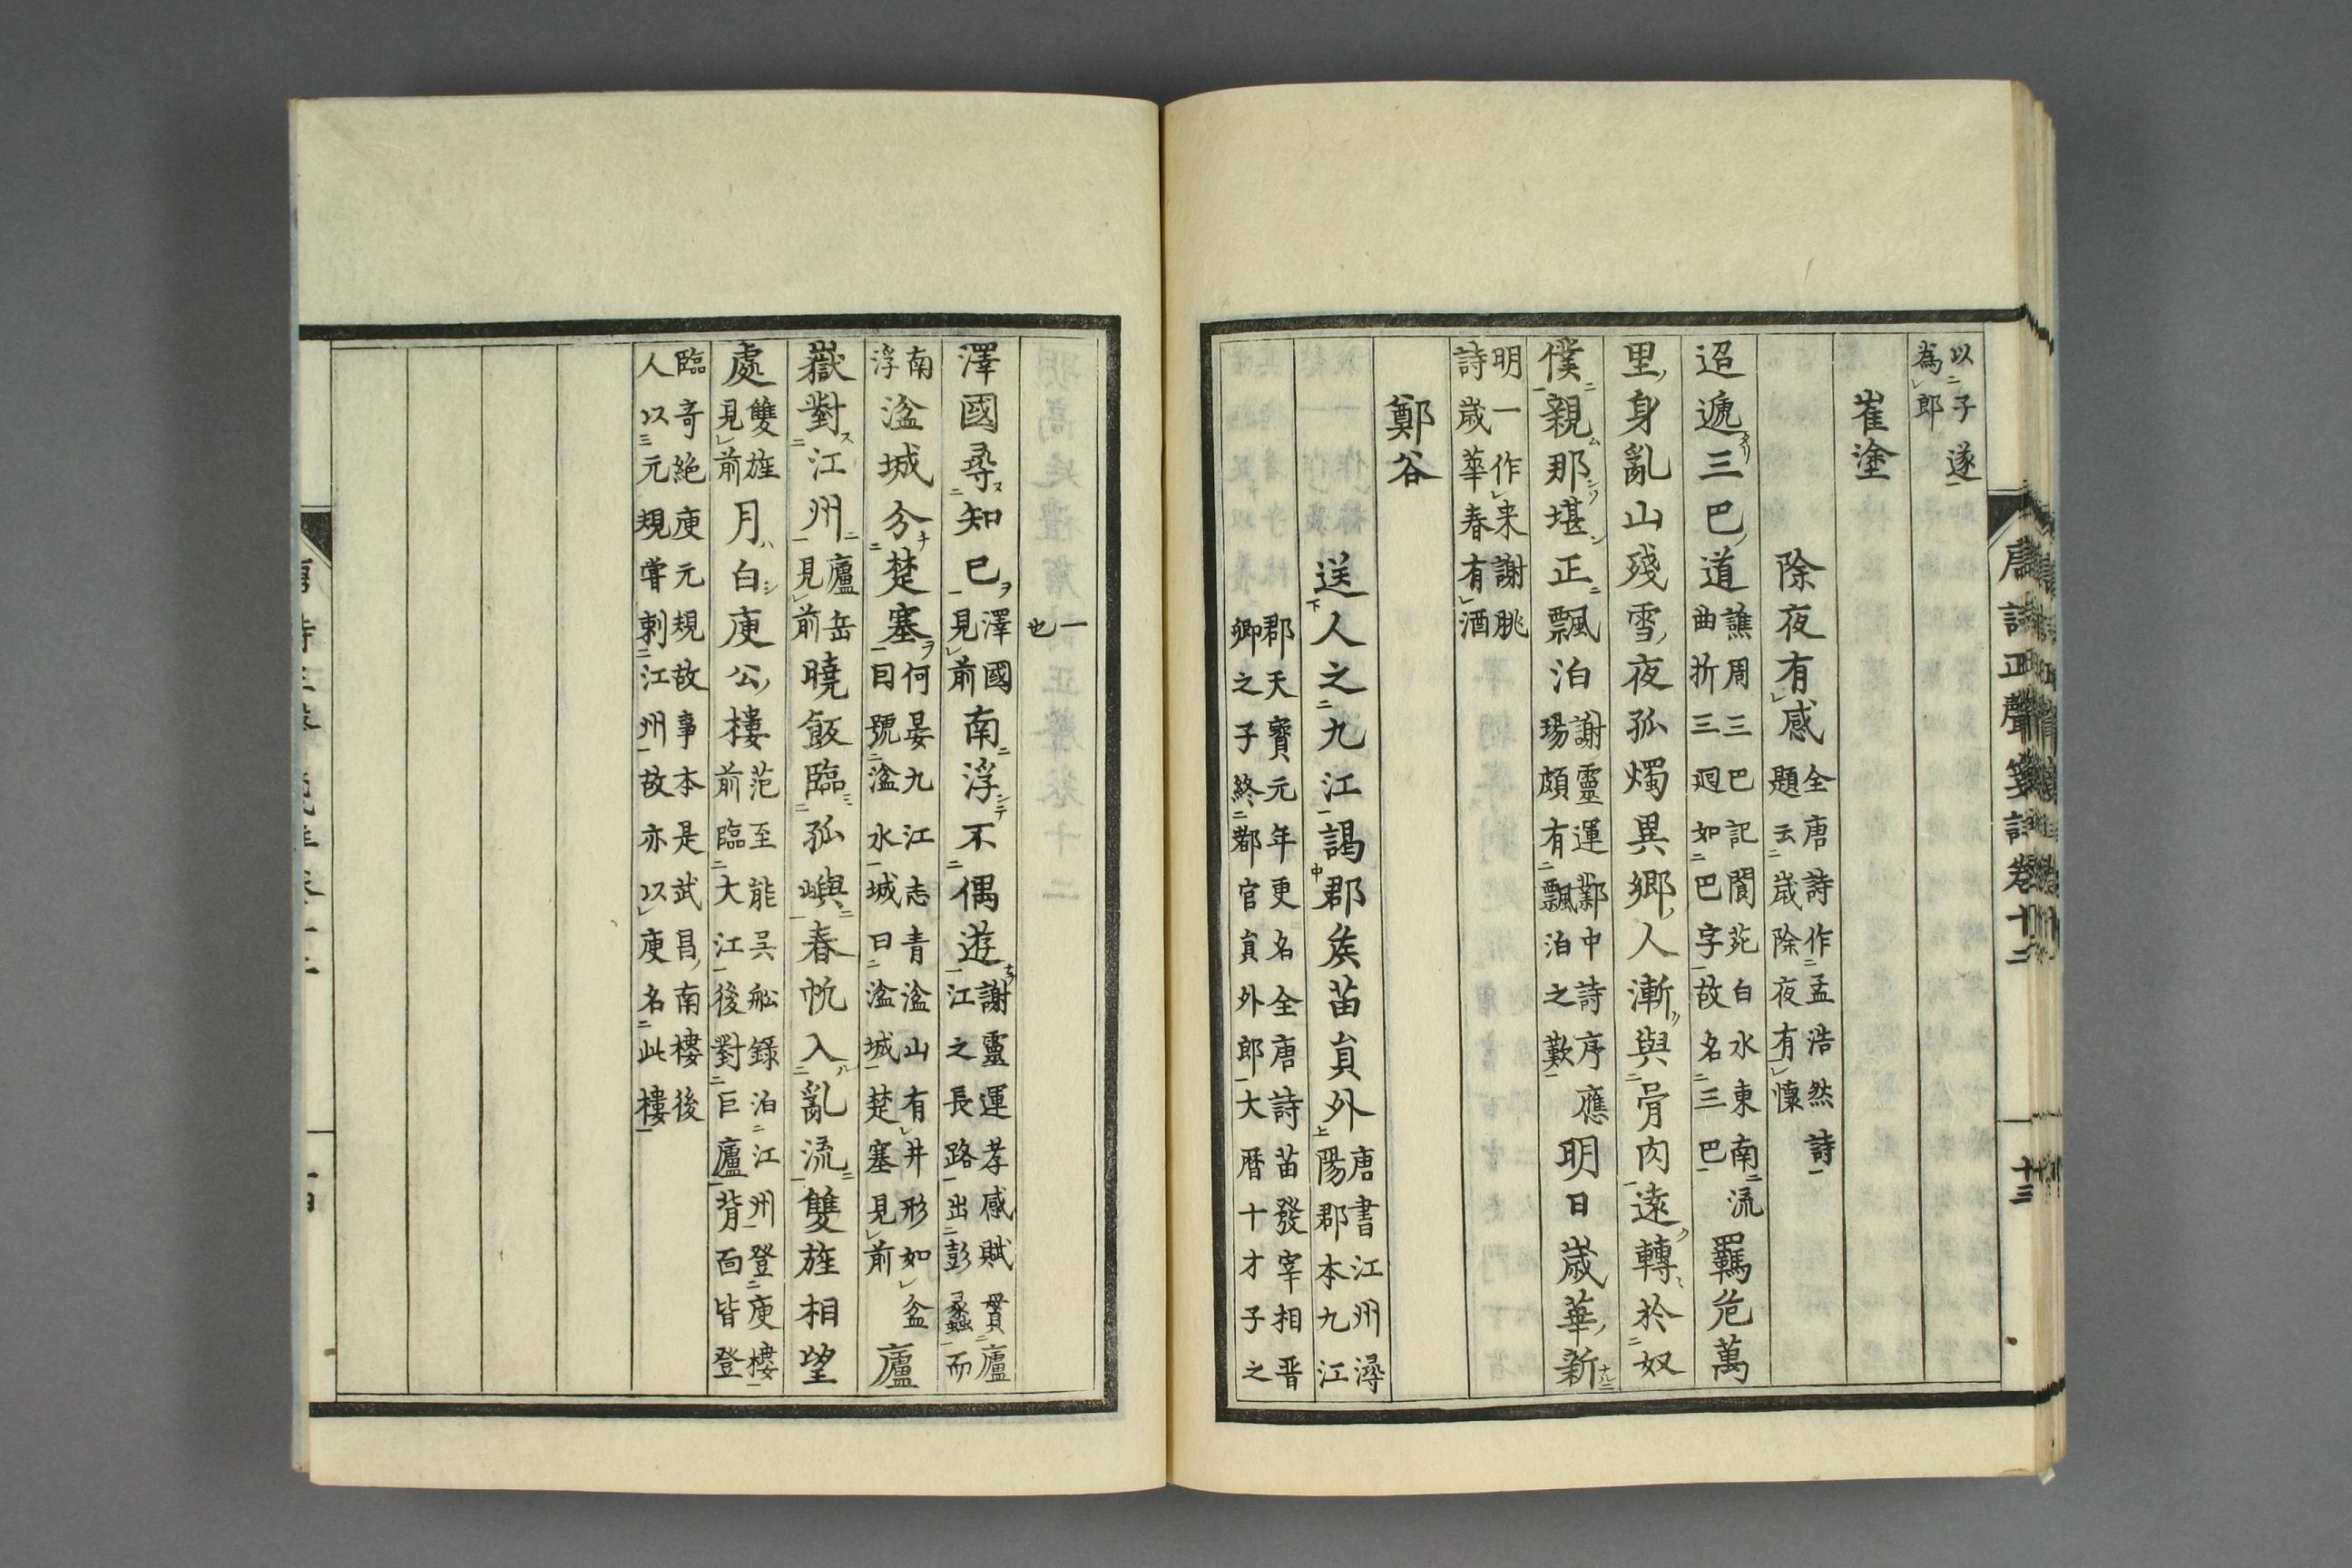 以子遂
為郎
崔塗
除夜有感全唐詩作孟浩然詩
題云歲除夜有懷
迢遞三巴道譙周三巴記閬苑白水東南流
曲折三廻如巴字故名三巴
羈危萬
里身亂山殘雪夜孤燭異鄉人漸與骨肉遠轉於奴
僕親那堪正飄泊謝靈運鄴中詩序應
瑒頗有飄泊之歎
明日歲華新
明一作来謝朓
詩歲華春有酒
鄭谷
送人之九江謁郡矦苗貟外唐書江州潯
陽郡本九江
郡天寶元年更名全唐詩苗發宰相晋
卿之子終都官貟外郎大曆十才子之
唐詩正聲箋註卷十二
十三
一
也
澤國尋知已澤國
見前
南浮不偶遊謝靈運孝感賦貫廬
江之長路出彭蠡而
南
浮
湓城分楚塞何晏九江志青湓山有井形如盆
因號湓水城曰湓城楚塞見前
廬
嶽對江州廬岳
見前
曉飯臨孤嶼春帆入亂流雙旌相望
處雙旌
見前
月白庾公樓范至能呉船錄泊江州登庾樓
前臨大江後對巨廬背面皆登
臨奇絶庾元規故事本是武昌南樓後
人以元規嘗刺江州故亦以庾名此樓